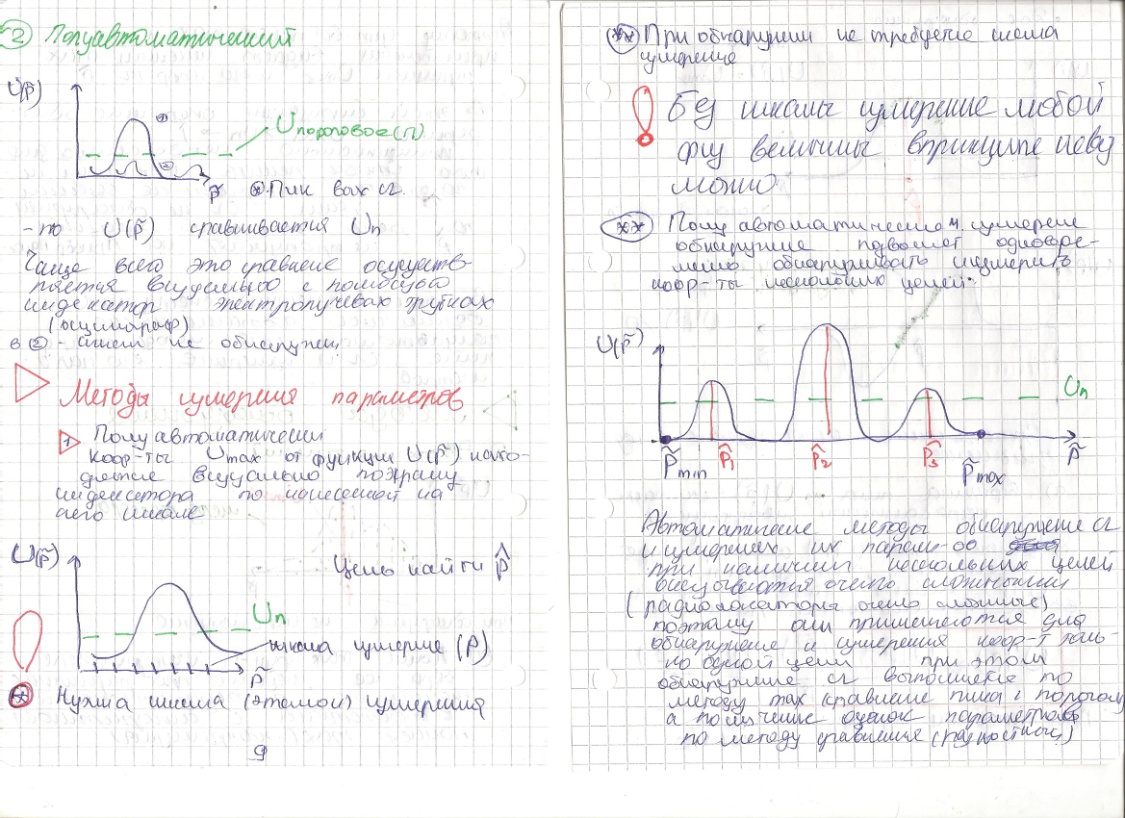 2 Полуавтоматический
U(p̃)
Uпороговое(п)
p̃
⊛ Пик вых сг.
- по U(p̃) сравнивается Uп
Чаще всего это сравнение осуществ
ляется визуально с помощью
индикатор электролучевых трубках
(осцилограф)
в ② - сигнал не обнаружен.
Методы измерения параметров
1 Полуавтоматический
Коор-ты Umax от функции U(p̃) нахо-
дятся визуально по экрану
индикатора по нанесенной на
него шкале
U(p̃)
Цель найти p̂
Uп
шкала измерение (P)
p̃
Нужна шкала (эталон) измерения
9
** При обнаружении не требуется шкала
измерение
! Без шкалы измерение любой
физ величины впринципе невоз
можно.
** Полуавтоматические и измерение
обнаружение позволяет одновре-
менно обнаруживать и измерить
коор-ты нескольких целей.
U(p̃)
Uп
p̃min
p̂1
p̂2
p̂3
p̃max
p̃
Автоматические методы обнаружение сг
и измерениях их парам-ов
при наличии нескольких целей
очень сложными
(радиолокаторы очень сложные)
поэтому они применяются для
обнаружение и измерения коор-т толь-
ко одной цели при этом
обнаружение сг выполнение по
методу max сравнение пика с порогом
а получение оценок параметров
по методу сравнения (разностной)